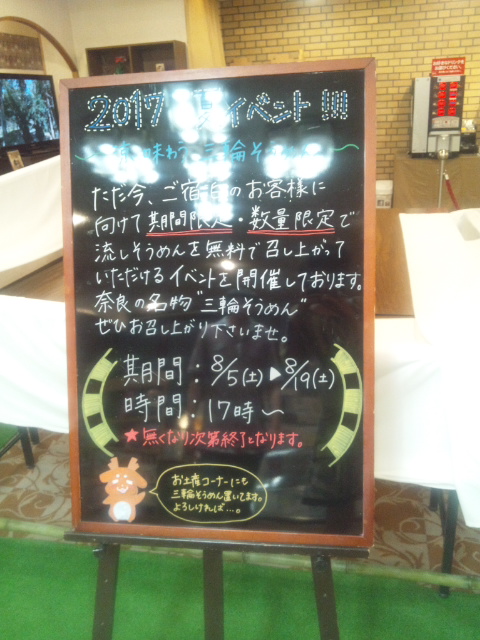 2017 夏イベント!!!
味わう 三輪そうめん
ただ今、ご宿泊のお客様に
向けて期間限定・数量限定で
流しそうめんを無料で召し上がって
いただけるイベントを開催しております。
奈良の名物"三輪そうめん"
ぜひお召し上がり下さいませ。
期間:8/5(土)▶8/19(土)
時間:17時〜
★無くなり次第終了となります。
お土産コーナーにも
三輪そうめん置いてます。
よろしければ…。